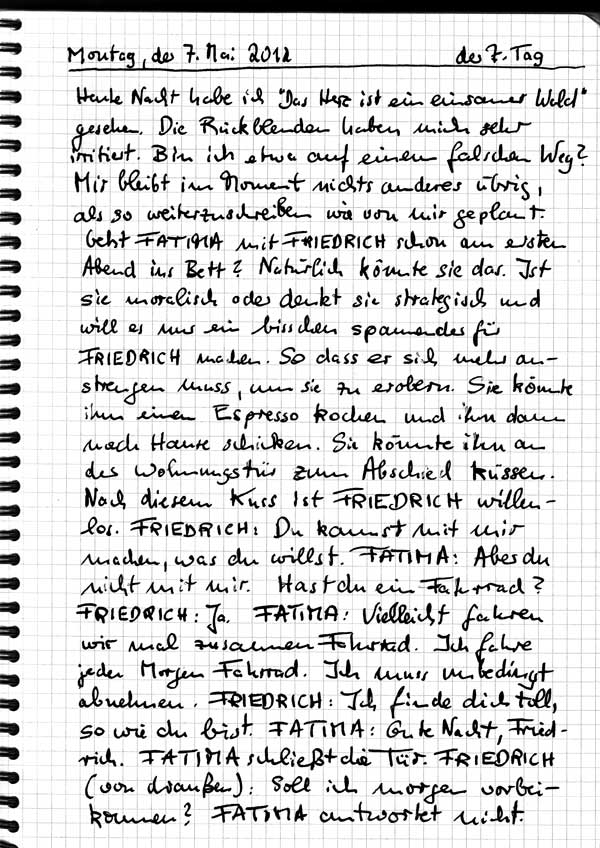 Montag, der 7. Mai 2012 der 7. Tag
Heute Nacht habe ich "Das Herz ist ein einsamer Wald"
gesehen. Die Rückblenden haben mich sehr
irritiert. Bin ich etwa auf einem falschen Weg?
Mir bleibt im Moment nichts anderes übrig,
als so weiterzuschreiben wie von mir geplant.
Geht FATIMA mit FRIEDRICH schon am ersten
Abend ins Bett? Natürlich könnte sie das. Ist
sie moralisch oder denkt sie strategisch und
will es nur ein bisschen spannender für
FRIEDRICH machen. So dass er sich mehr an-
strengen muss, um sie zu erobern. Sie könnte
ihm einen Espresso kochen und ihn dann
nach Hause schicken. Sie könnte ihn an
der Wohnungstür zum Abschied küssen.
Nach diesem Kuss ist FRIEDRICH willen-
los. FRIEDRICH: Du kannst mit mir
machen, was du willst. FATIMA: Aber du
nicht mit mir. Hast du ein Fahrrad?
FRIEDRICH: Ja. FATIMA: Vielleicht fahren
wir mal zusammen Fahrrad. Ich fahre
jeden Morgen Fahrrad. Ich muss unbedingt
abnehmen. FRIEDRICH: Ich finde dich toll,
so wie du bist. FATIMA: Gute Nacht, Fried-
rich. FATIMA schließt die Tür. FRIEDRICH
(von draußen): Soll ich morgen vorbei-
kommen? FATIMA antwortet nicht.